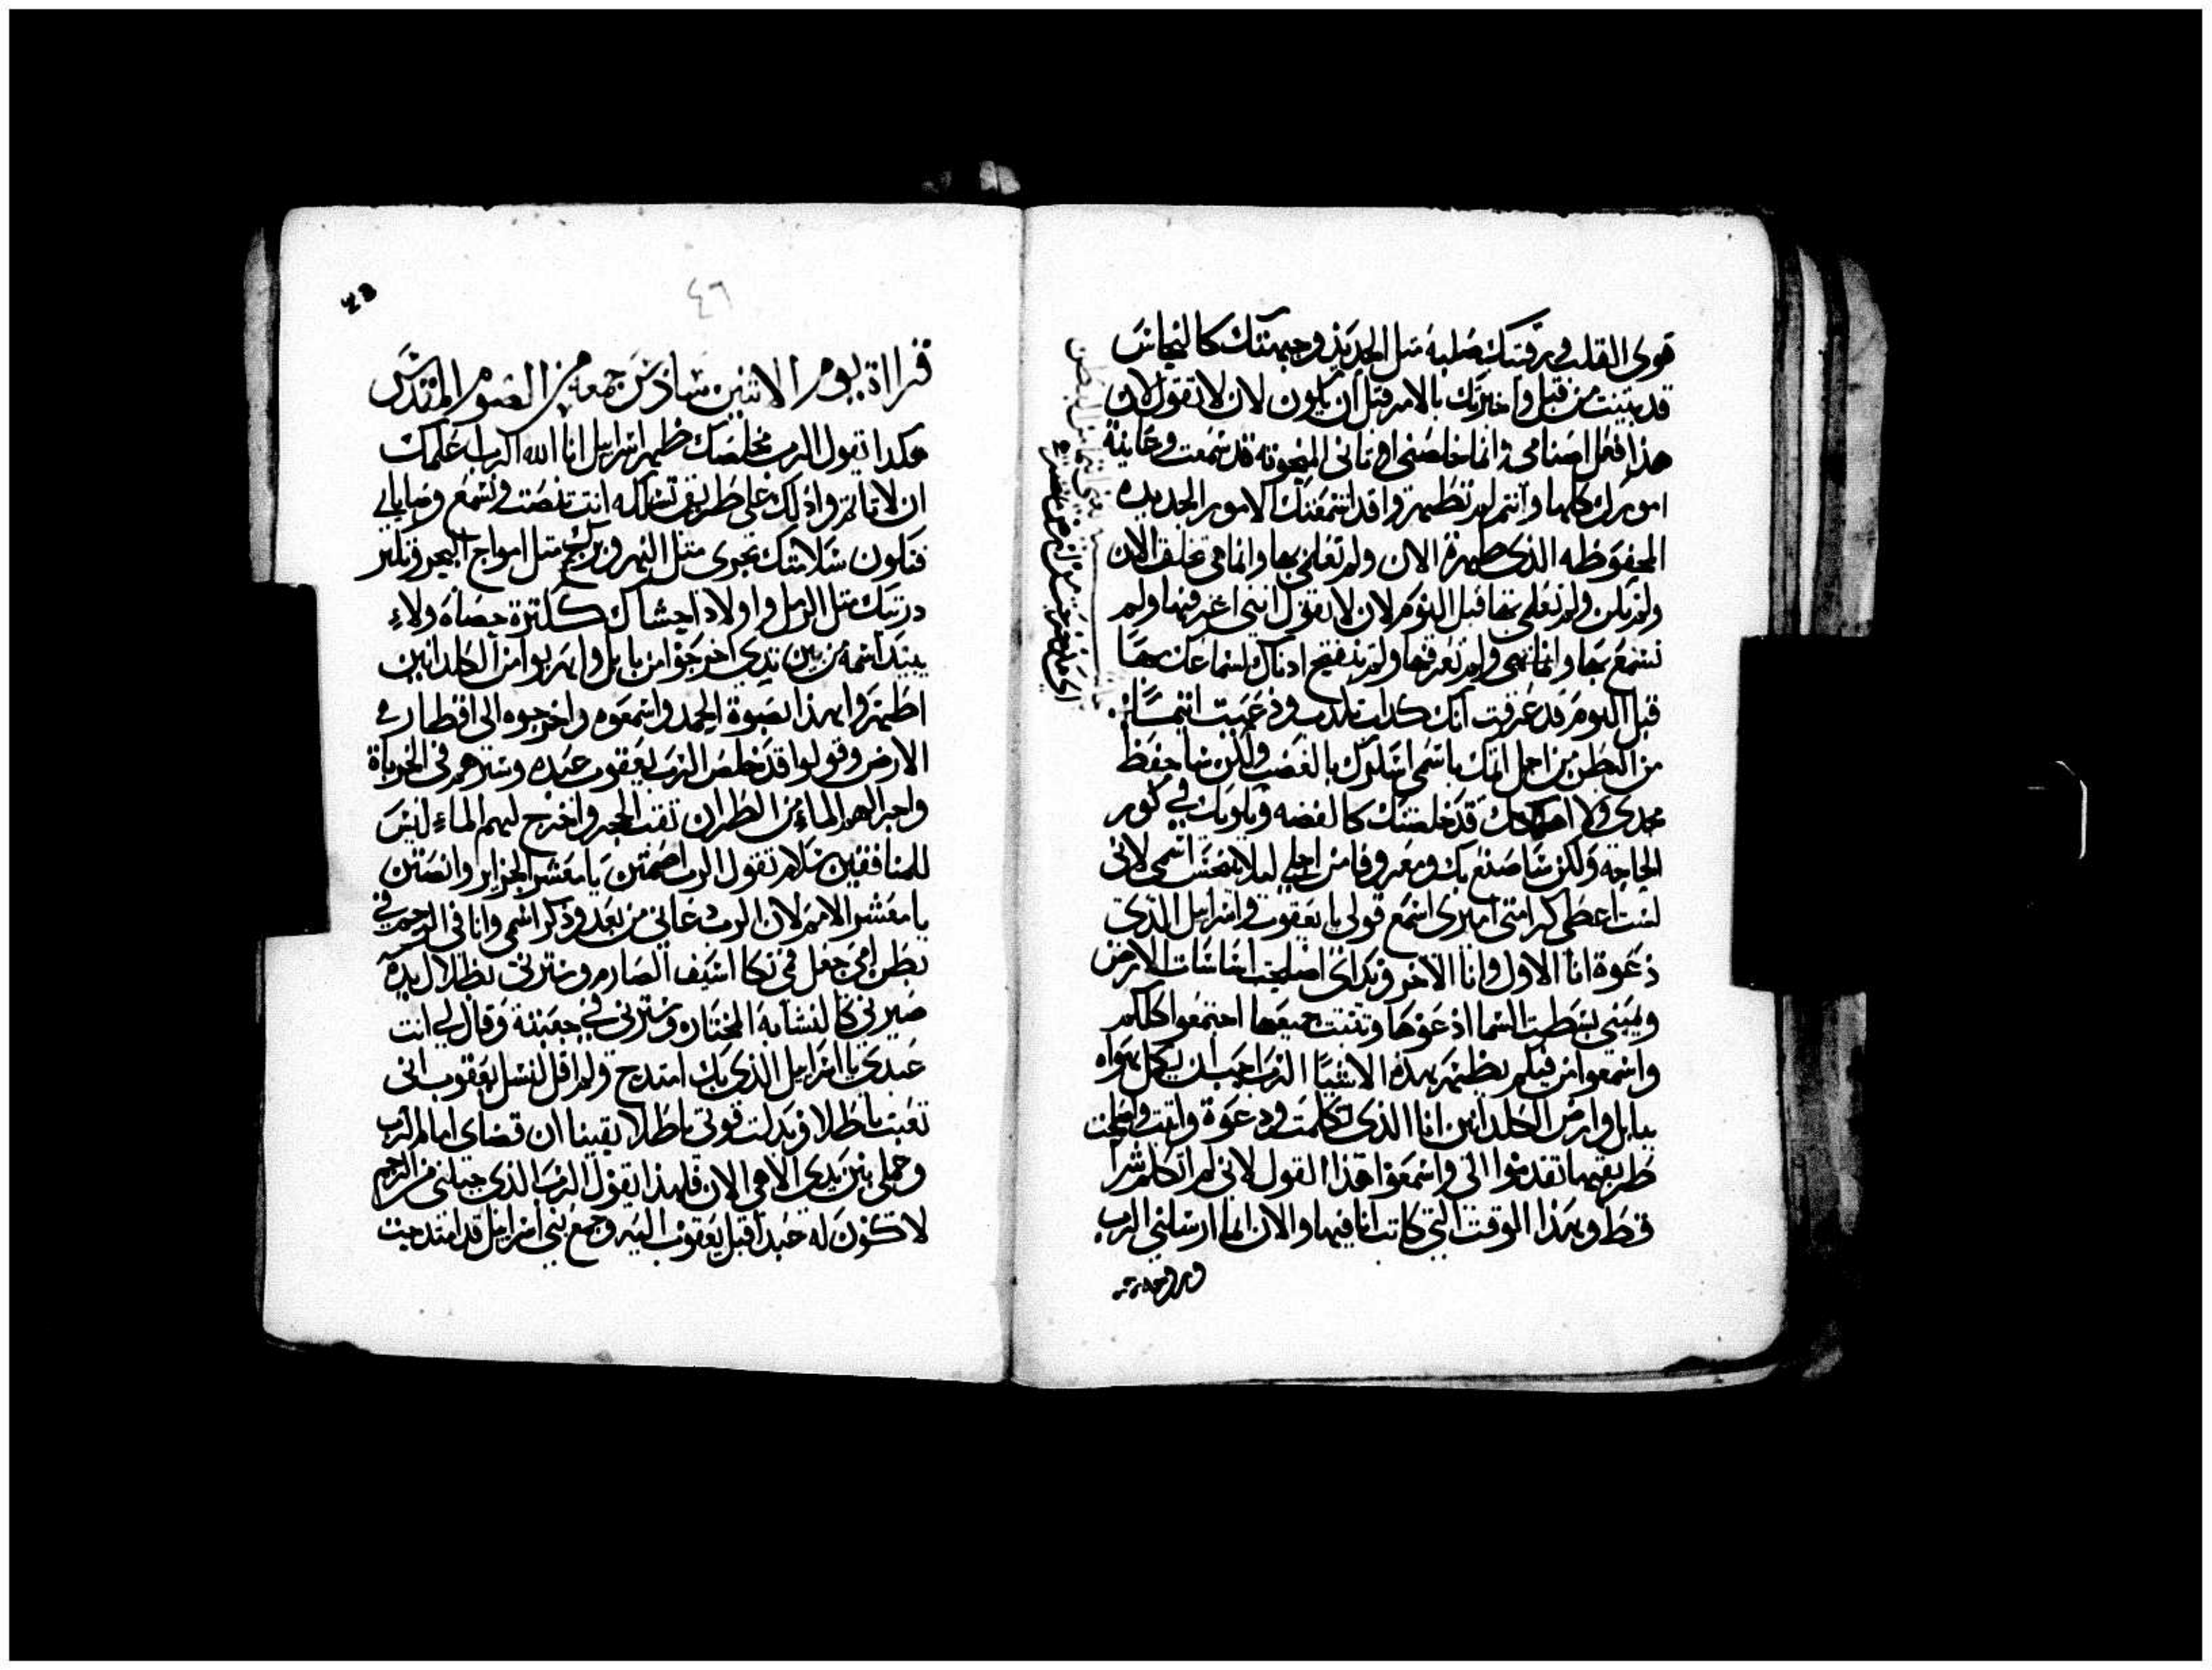 قوى القلب ورقبتك صلبه متل الحديد وجبهتك كالنحاس
قد بينت من قبل واخبرتك بالامر قبل ان يكون لان لا تقول لان
هذا فعل اصنامي انما خلصني اوتاني المنحوته قد سمعت وعاينة
امورك كلها وانتم لم تظهروا قد اسمعتك الامور الجديده
المحفوظه الذى ظهرة الان ولم تعلم بها وانما هي تخلف الان
ولم تكن ولم تعلم بها قبل اليوم لان لا تقول انني اعرفها ولم
تسمع بها وانما هي ولم تعرفها ولم تنفتح ادناك لسماعك بها
قبل اليوم قد عرفت انك كدات تكدب ودعيت اتمًا
من البطن من اجل انك باسمي اسلوك بالغضب ولكن ساحفظ
مجدى ولا اهلكك قد خلصتك كالفضه وبلوتك في كور
الحاجه ولكن ساصنع بك ومعروفا من اجلي ليلا ينجس اسمي لاني
لست اعطي كرامتي لغيرى اسمع قولي يا يعقوب واسراييل الذى
دعوة انا الاول وانا الاخر ويداى اصلحت اساسات الارض
ويميني بسطت السما ادعوها وتتبت جميعها اجتمعوا كلكم
واسمعوا من فيكم يظهر بهذه الاشيا الرب احب ان يكمل بهواه
ببابل وارض الكلدانين انا الذى تكلمت ودعوة واتيت واصلحت
طريقهما تقدموا الي واسمعوا هذا القول لاني لم اتكلم سرا
قط وبهذا الوقت التي كانت انا فيها والان انما ارسلني الرب
وروحه
٤٦
قراة يوم الاتنين سادس جمعه من الصوم المقدس
هكدا تقول الرب مخلصك طهر اسراييل انا الله الرب علمك
ان لا تاتم وادلك على طريق تسلكه انت تنصت وتسمع وصاياي
فتكون سلامتك تجرى متل النهر وبرك متل امواج البحر وتكتر
دريتك متل الرمل واولاد احشاك ككترة حصاه ولاء
يبيد اسمه من بين يدى اخرجوا من بابل واهربوا من الكلدانين
اظهروا بهذا بصوة الحمد واسمعوه واخرجوه الى اقطار
الارض وقولوا قد خلص الرب يعقوب عبده وسترهم في الخرباة
واجرا لهم الماء من الظران تقب الحجر واخرج ليهم الماء ليس
للمنافقين سلام تقول الرب اصمتين يا معشر الجزاير وانصتين
يا معشر الامم لان الرب دعاني من بعد وذكر اسمي وانا في الرحم في
بطن امي جعل فمي كا السيف الصارم وسترني بظلال يده
صيرني كا لنشابه المختاره وسترني في جعبته وقال لي انت
عبدي يا اسراييل الذى بك امتدح ولم اقل لنسل يعقوب اني
تعبت باطلا وبدلت قوتي باطلا يقينا ان قضاي امام الرب
وعملي بين يدى الاهي الان فلهذا يقول الرب الذى جبلني من الرحم
لاكون له عبدا قبل يعقوب اليه وجمع بني اسراييل قد امتدحت